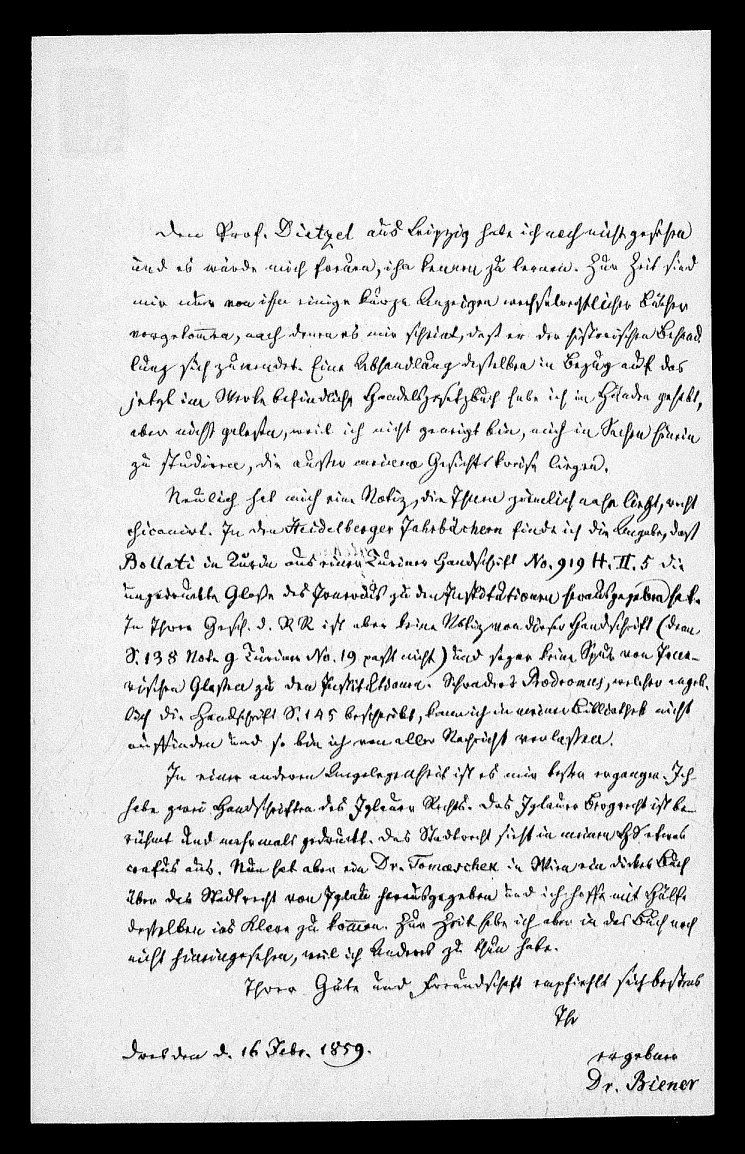 Den Prof. Dietzel aus Leipzig habe ich noch nicht gesehen
und es würde mich freuen, ihn kennen zu lernen. Zur Zeit sind
mir nur von ihm einige kurze Anzeigen wechselrechtlicher Bücher
vorgekom̅en, nach denen es mir scheint, daß er der historischen Behand
lung sich zuwendet. Eine Abhandlung desselben in Bezug auf das
jetzt im Werke befindliche Handelsgesetzbuch habe ich in Händen gehabt,
aber nicht gelesen, weil ich nicht geneigt bin, mich in Sachen hinein
zu studieren, die außer meinem Gesichtskreise liegen.
Neulich hat mich eine Notiz, die Ihnen ziemlich nahe liegt, recht
chicanirt. In den Heidelberger Jahrbüchern finde ich die Angabe, daß
Bollati in Turin aus einer Turiner Handschrift No. 919 H. II. 5 die
ungedruckte Glosse des Irnerius zu den Institutionen herausgegeben habe.
In Ihrer Gesch. d. RR ist aber keine Notiz von dieser Handschrift (denn
S. 138 Note g Turiner No. 19 paßt nicht) und sogar keine Spur von Irne-
rischen Glossen zu den Institutionen. Schraders Prodromus, welcher angeb-
lich die Handschrift S. 145 beschreibt, kann ich in meiner Bibliothek nicht
auffinden und so bin ich von aller Nachricht verlassen.
In einer anderen Angelegenheit ist es mir besser ergangen. Ich
habe zwei Handschriften des Iglauer Rechts. Das Iglauer Bergrecht ist be-
rühmt und mehrmals gedruckt. Das Stadtrecht sieht in meinen HS etwas
confus aus. Nun hat aber ein Dr. Tomaschek in Wien ein dickes Buch
über das Stadtrecht von Iglau herausgegeben und ich hoffe mit Hülfe
desselben ins Klare zu kom̅en. Zur Zeit habe ich aber in das Buch noch
nicht hineingesehen, weil ich Anderes zu thun habe.
Ihrer Güte und Freundschaft empfiehlt sich bestens
Ihr
Dresden d. 16 Febr. 1859.
ergebner
Dr. Biener